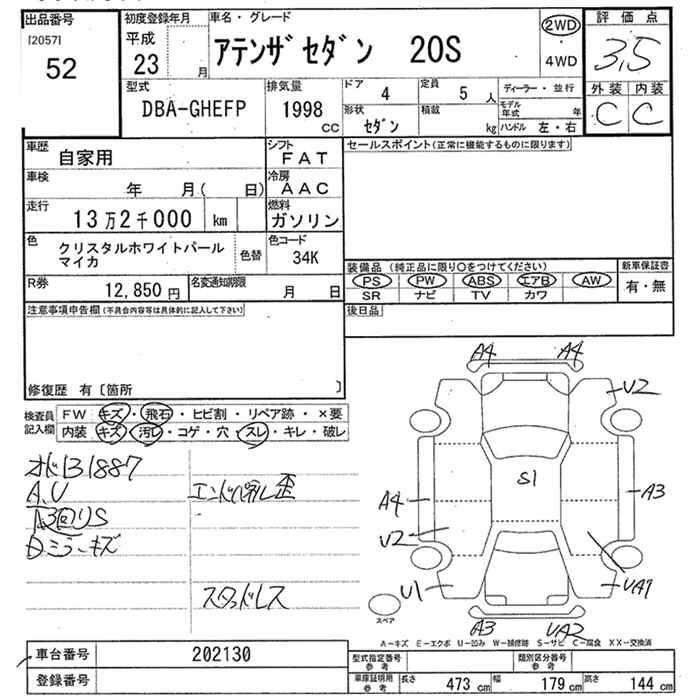 出品番号
[2057]
52
初度登録年月
平成
23 月
車名・グレード
アテンザ セダン 20S
2WD
・
4WD
評価点
3.5
外装 内装
C C
型式
DBA-GHEFP
排気量
1998
CC
ドア
4
定員
5 人
ディーラー・並行
モデル年式 年
形状
セダン
積載
kg
ハンドル 左・右
車歴
自家用
シフト
FAT
セールスポイント(正常に機能するものに限ります)
車検
年 月( 日)
冷房
AAC
走行
13万2千000 km
燃料
ガソリン
色
クリスタルホワイトパール
マイカ
色替
色コード
34K
R券
12,850 円
名変通知期限
月 日
装備品 (純正品に限り○をつけてください)
PS PW ABS エアB AW
SR ナビ TV カワ
新車保証書
有・無
注意事項申告欄(不具合内容等は具体的に記入して下さい)
後日品
修復歴 有〔箇所 〕
検査員
記入欄
FW キズ・飛石・ヒビ割・リペア跡・×要
内装 キズ・汚レ・コゲ・穴・スレ・キレ・破レ
A.U
A3回りS
ミラーキズ
エンドパネル歪
スタッドレス
A4
A4
U2
S1
A4
A3
U2
U1
UA1
A3
UA2
スペア
A-キズ E-エクボ U-凹み W-補修跡 S-サビ C-腐食 XX-交換済
車台番号
202130
登録番号
型式指定番号
参考
類別区分番号
参考
車庫証明用
参考
長さ 473 cm
幅 179 cm
高さ 144 cm